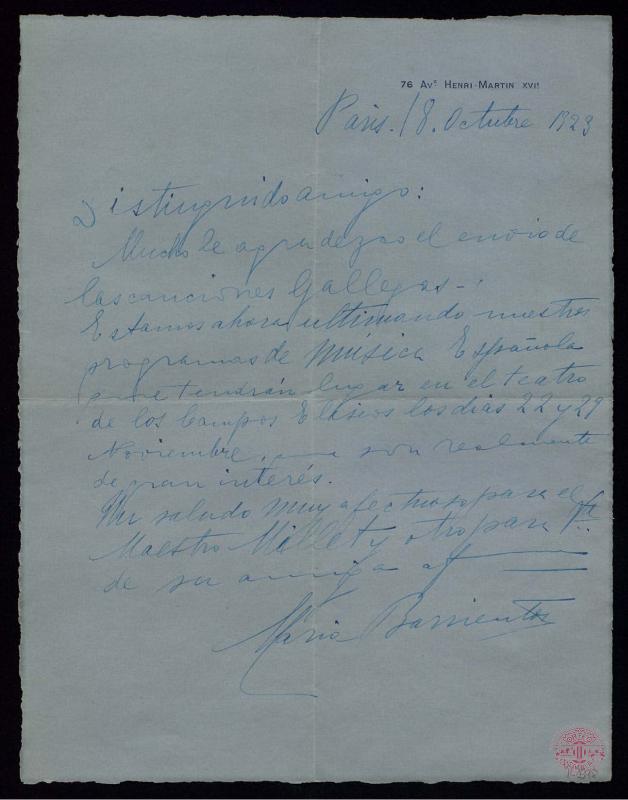 76 Avᵉ Henri-Martin XVIᵉ
Paris. 18. Octubre 1923
Distinguido amigo:
Mucho le agradezco el envio de
las canciones Gallegas -.
Estamos ahora ultimando nuestros
programas de Música Española
que tendrán lugar en el teatro
de los Campos Eliseos los dias 22 y 29
Noviembre, son realmente
de gran interés.
Un saludo muy afectuoso para el
Maestro Millet y otro para V.
de su amiga af
Maria Barrientos